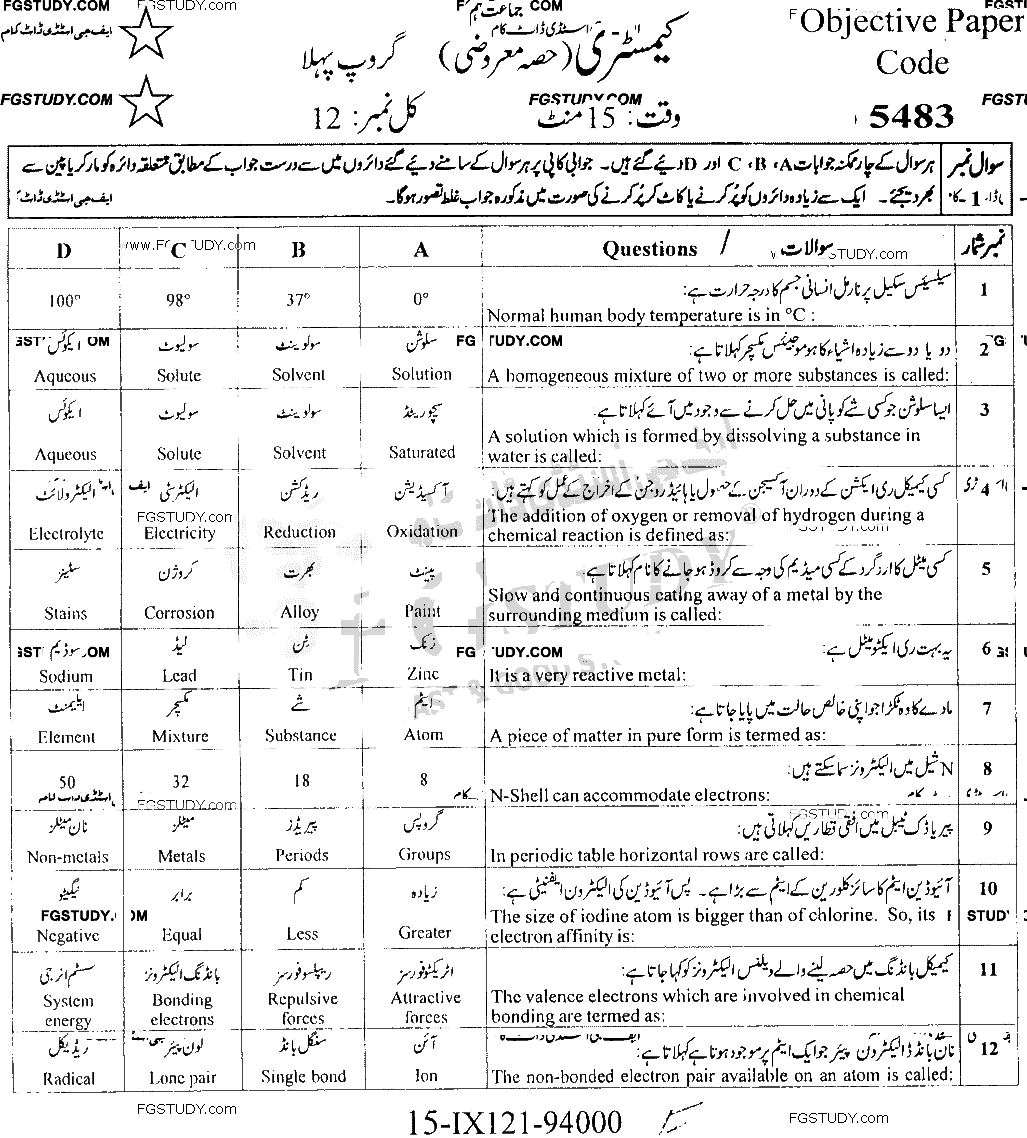 FGSTUDY.COM
جماعت نہم
Objective Paper
Code
5483
کیمسٹری (حصہ معروضی) گروپ پہلا
FGSTUDY.COM
وقت: 15 منٹ
کل نمبر: 12
سوال نمبر 1
ہر سوال کے چار ممکنہ جوابات A، B، C اور D دیئے گئے ہیں۔ جوابی کاپی پر ہر سوال کے سامنے دیئے گئے دائروں میں سے درست جواب کے مطابق متعلقہ دائرہ کو مارکر یا پین سے
بھر دیجئے۔ ایک سے زیادہ دائروں کو پُر کرنے یا کاٹ کر پُر کرنے کی صورت میں مذکورہ جواب غلط تصور ہوگا۔
نمبر شمار سوالات / Questions A B C D
1 سیلسیئس سکیل پر نارمل انسانی جسم کا درجہ حرارت ہے:
Normal human body temperature is in °C :
0° 37° 98° 100°
2 دو یا دو سے زیادہ اشیاء کا ہوموجینئس مکسچر کہلاتا ہے:
سلوشن سولوینٹ سولیوٹ ایکوئس
A homogeneous mixture of two or more substances is called:
Solution Solvent Solute Aqueous
3 ایسا سلوشن جو کسی شے کو پانی میں حل کرنے سے وجود میں آئے کہلاتا ہے:
سیچوریٹڈ سولوینٹ سولیوٹ ایکوئس
A solution which is formed by dissolving a substance in
water is called:
Saturated Solvent Solute Aqueous
4 کسی کیمیکل ری ایکشن کے دوران آکسیجن کے حصول یا ہائیڈروجن کے اخراج کے عمل کو کہتے ہیں:
آکسیڈیشن ریڈکشن الیکٹرسٹی الیکٹرولائٹ
The addition of oxygen or removal of hydrogen during a
chemical reaction is defined as:
Oxidation Reduction Electricity Electrolyte
5 کسی میٹل کا ارد گرد کے کسی میڈیم کی وجہ سے کروڈ ہو جانے کا نام کہلاتا ہے:
پینٹ بھرت کروژن سٹینز
Slow and continuous eating away of a metal by the
surrounding medium is called:
Paint Alloy Corrosion Stains
6 یہ بہت ری ایکٹو میٹل ہے:
زنک ٹن لیڈ سوڈیم
It is a very reactive metal:
Zinc Tin Lead Sodium
7 مادے کا وہ ٹکڑا جو اپنی خالص حالت میں پایا جاتا ہے:
ایٹم شے مکسچر ایلیمنٹ
A piece of matter in pure form is termed as:
Atom Substance Mixture Element
8 N شیل میں الیکٹرونز سما سکتے ہیں:
N-Shell can accommodate electrons:
8 18 32 50
9 پیریاڈک ٹیبل میں افقی قطاریں کہلاتی ہیں:
گروپس پیریڈز میٹلز نان میٹلز
In periodic table horizontal rows are called:
Groups Periods Metals Non-metals
10 آئیوڈین ایٹم کا سائز کلورین کے ایٹم سے بڑا ہے۔ پس آئیوڈین کی الیکٹرون ایفینٹی ہے:
زیادہ کم برابر نیگیٹو
The size of iodine atom is bigger than of chlorine. So, its
electron affinity is:
Greater Less Equal Negative
11 کیمیکل بانڈنگ میں حصہ لینے والے ویلنس الیکٹرونز کو کہا جاتا ہے:
اٹریکٹو فورسز ریپلسو فورسز بانڈنگ الیکٹرونز سسٹم انرجی
The valence electrons which are involved in chemical
bonding are termed as:
Attractive forces Repulsive forces Bonding electrons System energy
12 نان بانڈڈ الیکٹرون پیئر جو ایک ایٹم پر موجود ہوتا ہے کہلاتا ہے:
آئن سنگل بانڈ لون پیئر ریڈیکل
The non-bonded electron pair available on an atom is called:
Ion Single bond Lone pair Radical
FGSTUDY.com
15-IX121-94000
FGSTUDY.com